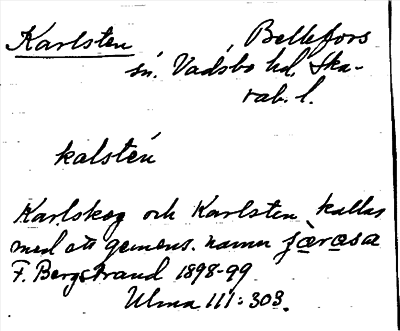 Karlsten, Bellefors
sn. Vadsbo hd, Ska-
rab. l.
kalstén
Karlskog och Karlsten kallas
med ett gemens. namn färåsa
F. Bergstrand 1898-99
Ulma 111:303.